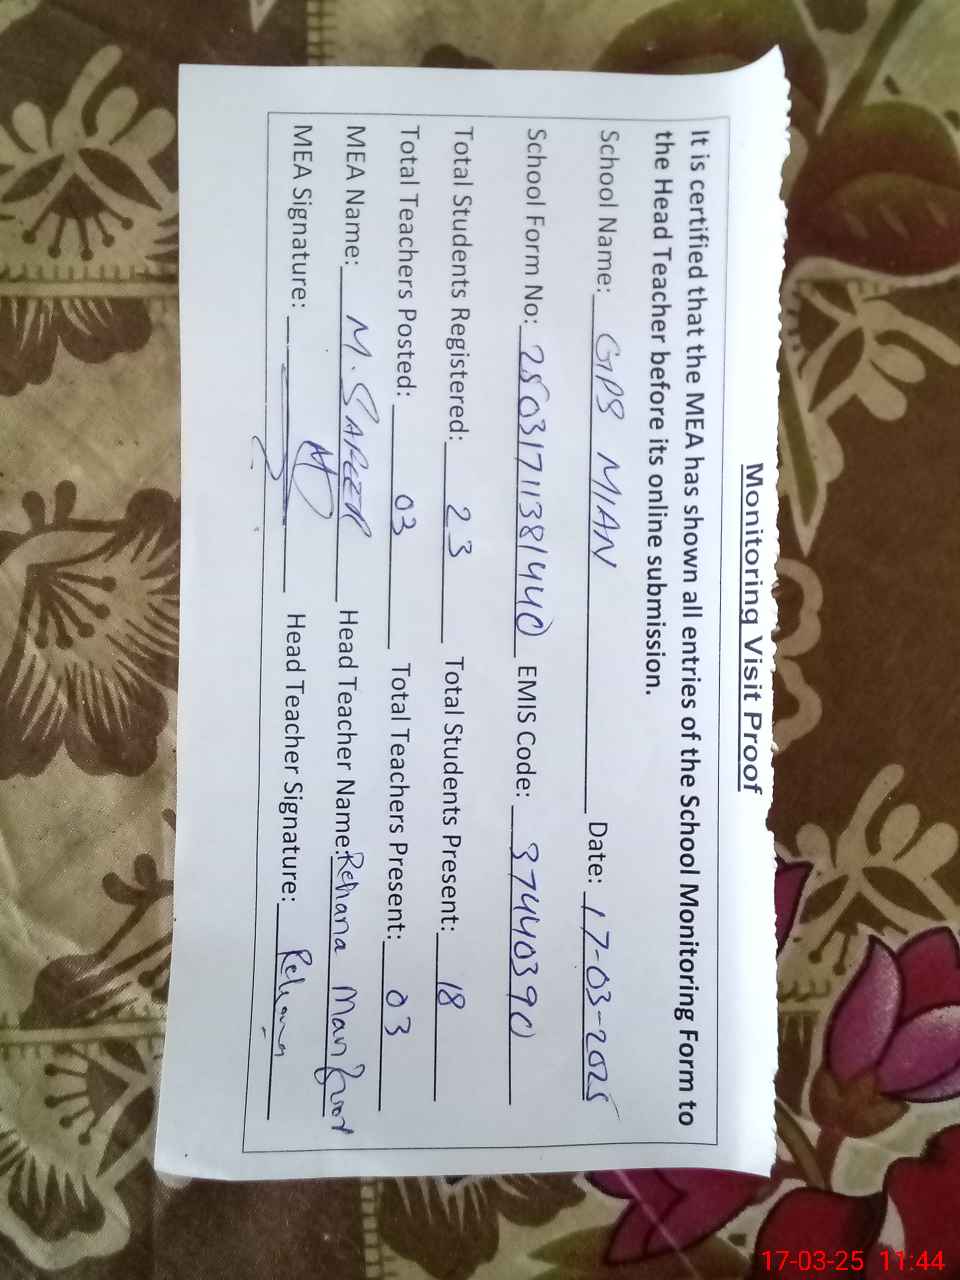 Monitoring Visit Proof
It is certified that the MEA has shown all entries of the School Monitoring Form to
the Head Teacher before its online submission.
School Name: GPS MIAN Date: 17-03-2025
School Form No: 25031711381440 EMIS Code: 37440390
Total Students Registered: 23 Total Students Present: 18
Total Teachers Posted: 03 Total Teachers Present: 03
MEA Name: M. Head Teacher Name: Rehana
MEA Signature: Head Teacher Signature: Rehana
17-03-25 11:44